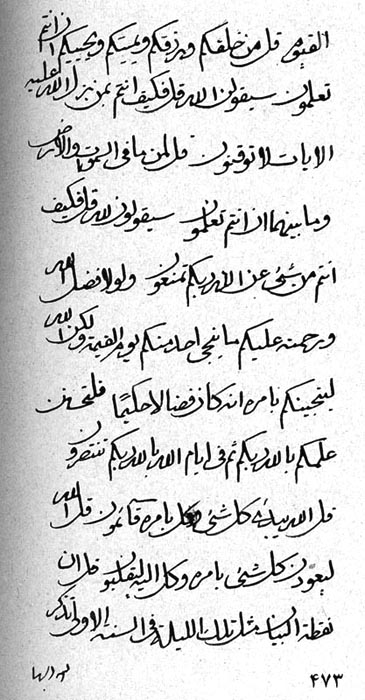 القيوم قل من خلقكم ويرزقكم ويميتكم ويحييكم ان انتم
تعلمون سيقولن الله قل فكيف انتم بمن نزل الله عليه
الايات لا توقنون قل لمن ما في السموات والارض
وما بينهما ان انتم تعلمون سيقولون لله قل فكيف
انتم من شيء عن الله ربكم تمنعون ولولا فضل الله
ورحمته عليكم ما ينجى احد منكم يوم القيمة ولكن الله
لينجينكم بامره انه كان فضالا حكيما
بالله ربكم ثم في ايام الله بالله ربكم تنتصرون
قل الله يبدء كل شيء وكل بامره قائمون قل الله
ليعودن كل شيء بامره وكل اليه ينقلبون قل ان
نقطة البيان مثل تلك الليلة في السنه الاولى تذكر
٤٧٣